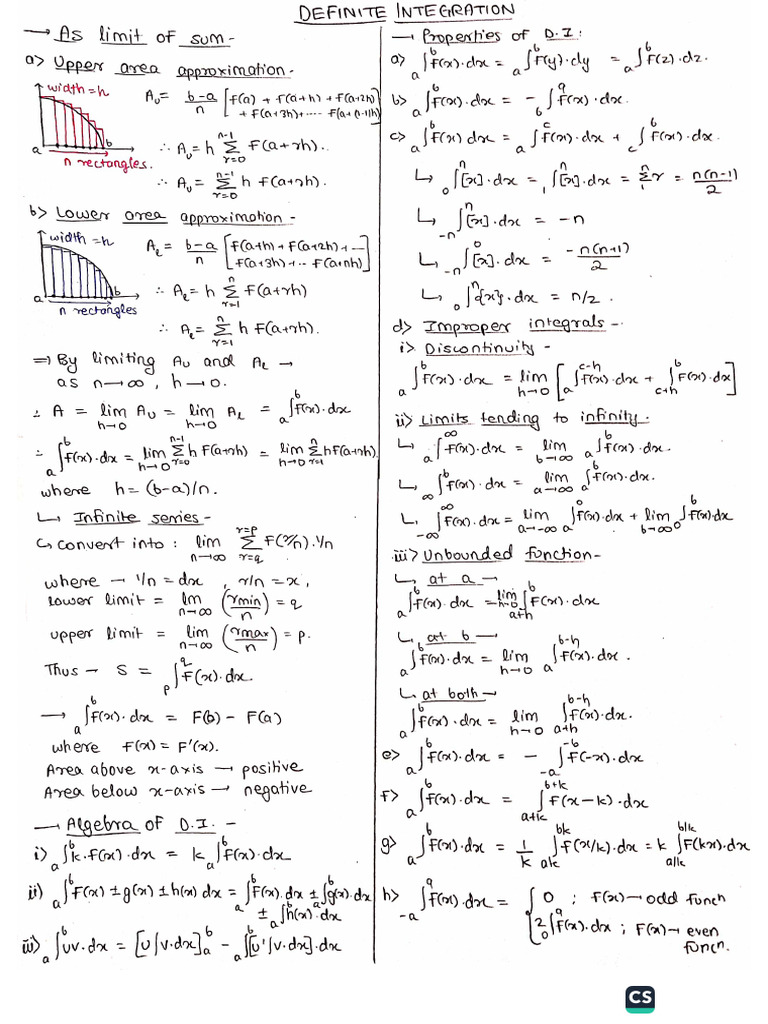 DEFINITE INTEGRATION
→ As limit of sum-
a> Upper area approximation-
width=h
a b
n rectangles.
A_U = (b-a)/n [f(a) + f(a+h) + f(a+2h) + f(a+3h)+---- f(a+(n-1)h)]
∴ A_U = h Σ_{r=0}^{n-1} f(a+rh)
∴ A_U = Σ_{r=0}^{n-1} h f(a+rh).
b> Lower area approximation-
width=h
a b
n rectangles
A_L = (b-a)/n [f(a+h) + f(a+2h)+--- f(a+3h)+-- f(a+nh)]
∴ A_L = h Σ_{r=1}^{n} f(a+rh)
∴ A_L = Σ_{r=1}^{n} h f(a+rh).
⇒ By limiting A_U and A_L →
as n→∞, h→0.
∴ A = lim_{h→0} A_U = lim_{h→0} A_L = ∫_a^b f(x).dx
∴ ∫_a^b f(x).dx = lim_{h→0} Σ_{r=0}^{n-1} h f(a+rh) = lim_{h→0} Σ_{r=1}^{n} h f(a+rh)
where h=(b-a)/n.
↳ Infinite series-
↳ convert into: lim_{n→∞} Σ_{r=q}^{r=p} f(r/n).1/n
where → 1/n = dx , r/n = x ,
lower limit = lim_{n→∞} (rmin/n) = q
upper limit = lim_{n→∞} (rmax/n) = p.
Thus → S = ∫_p^q f(x).dx.
→ ∫_a^b f(x).dx = F(b) - F(a)
where f(x) = F'(x).
Area above x-axis → positive
Area below x-axis → negative
→ Algebra of D.I.-
i) ∫_a^b k.f(x).dx = k ∫_a^b f(x).dx
ii) ∫_a^b f(x) ± g(x) ± h(x) dx = ∫_a^b f(x).dx ± ∫_a^b g(x).dx ± ∫_a^b h(x).dx
iii) ∫_a^b uv.dx = [u∫v.dx]_a^b - ∫_a^b [u'∫v.dx].dx
→ Properties of D.I:
a) ∫_a^b f(x).dx = ∫_a^b f(y).dy = ∫_a^b f(z).dz.
b> ∫_a^b f(x).dx = - ∫_b^a f(x).dx.
c> ∫_a^b f(x) dx = ∫_a^c f(x).dx + ∫_c^b f(x).dx.
↳ ∫_0^n [x].dx = ∫_1^n [x].dx = Σ_1^n r = n(n-1)/2
↳ ∫_{-n}^n [x].dx = -n
↳ ∫_{-n}^0 [x].dx = -n(n+1)/2
↳ ∫_0^n {x}.dx = n/2.
d> Improper integrals-
i> Discontinuity-
∫_a^b f(x).dx = lim_{h→0} [∫_a^{c-h} f(x).dx + ∫_{c+h}^b f(x).dx]
ii> Limits tending to infinity.
↳ ∫_a^∞ f(x).dx = lim_{b→∞} ∫_a^b f(x).dx.
↳ ∫_∞^b f(x).dx = lim_{a→∞} ∫_a^b f(x).dx.
↳ ∫_{-∞}^∞ f(x).dx = lim_{a→-∞} ∫_a^0 f(x).dx + lim_{b→∞} ∫_0^b f(x)dx
iii> Unbounded function-
↳ at a →
∫_a^b f(x).dx = lim_{h→0} ∫_{a+h}^b f(x).dx
↳ at b →
∫_a^b f(x).dx = lim_{h→0} ∫_a^{b-h} f(x).dx.
↳ at both→
∫_a^b f(x).dx = lim_{h→0} ∫_{a+h}^{b-h} f(x).dx.
e> ∫_a^b f(x).dx = - ∫_{-a}^{-b} f(-x).dx
f> ∫_a^b f(x).dx = ∫_{a+k}^{b+k} f(x-k).dx
g> ∫_a^b f(x).dx = 1/k ∫_{ak}^{bk} f(x/k).dx = k ∫_{a/k}^{b/k} f(kx).dx
h> ∫_{-a}^a f(x).dx = { 0 ; f(x)→odd funcn
2∫_0^a f(x).dx ; f(x)→even funcn.
CS